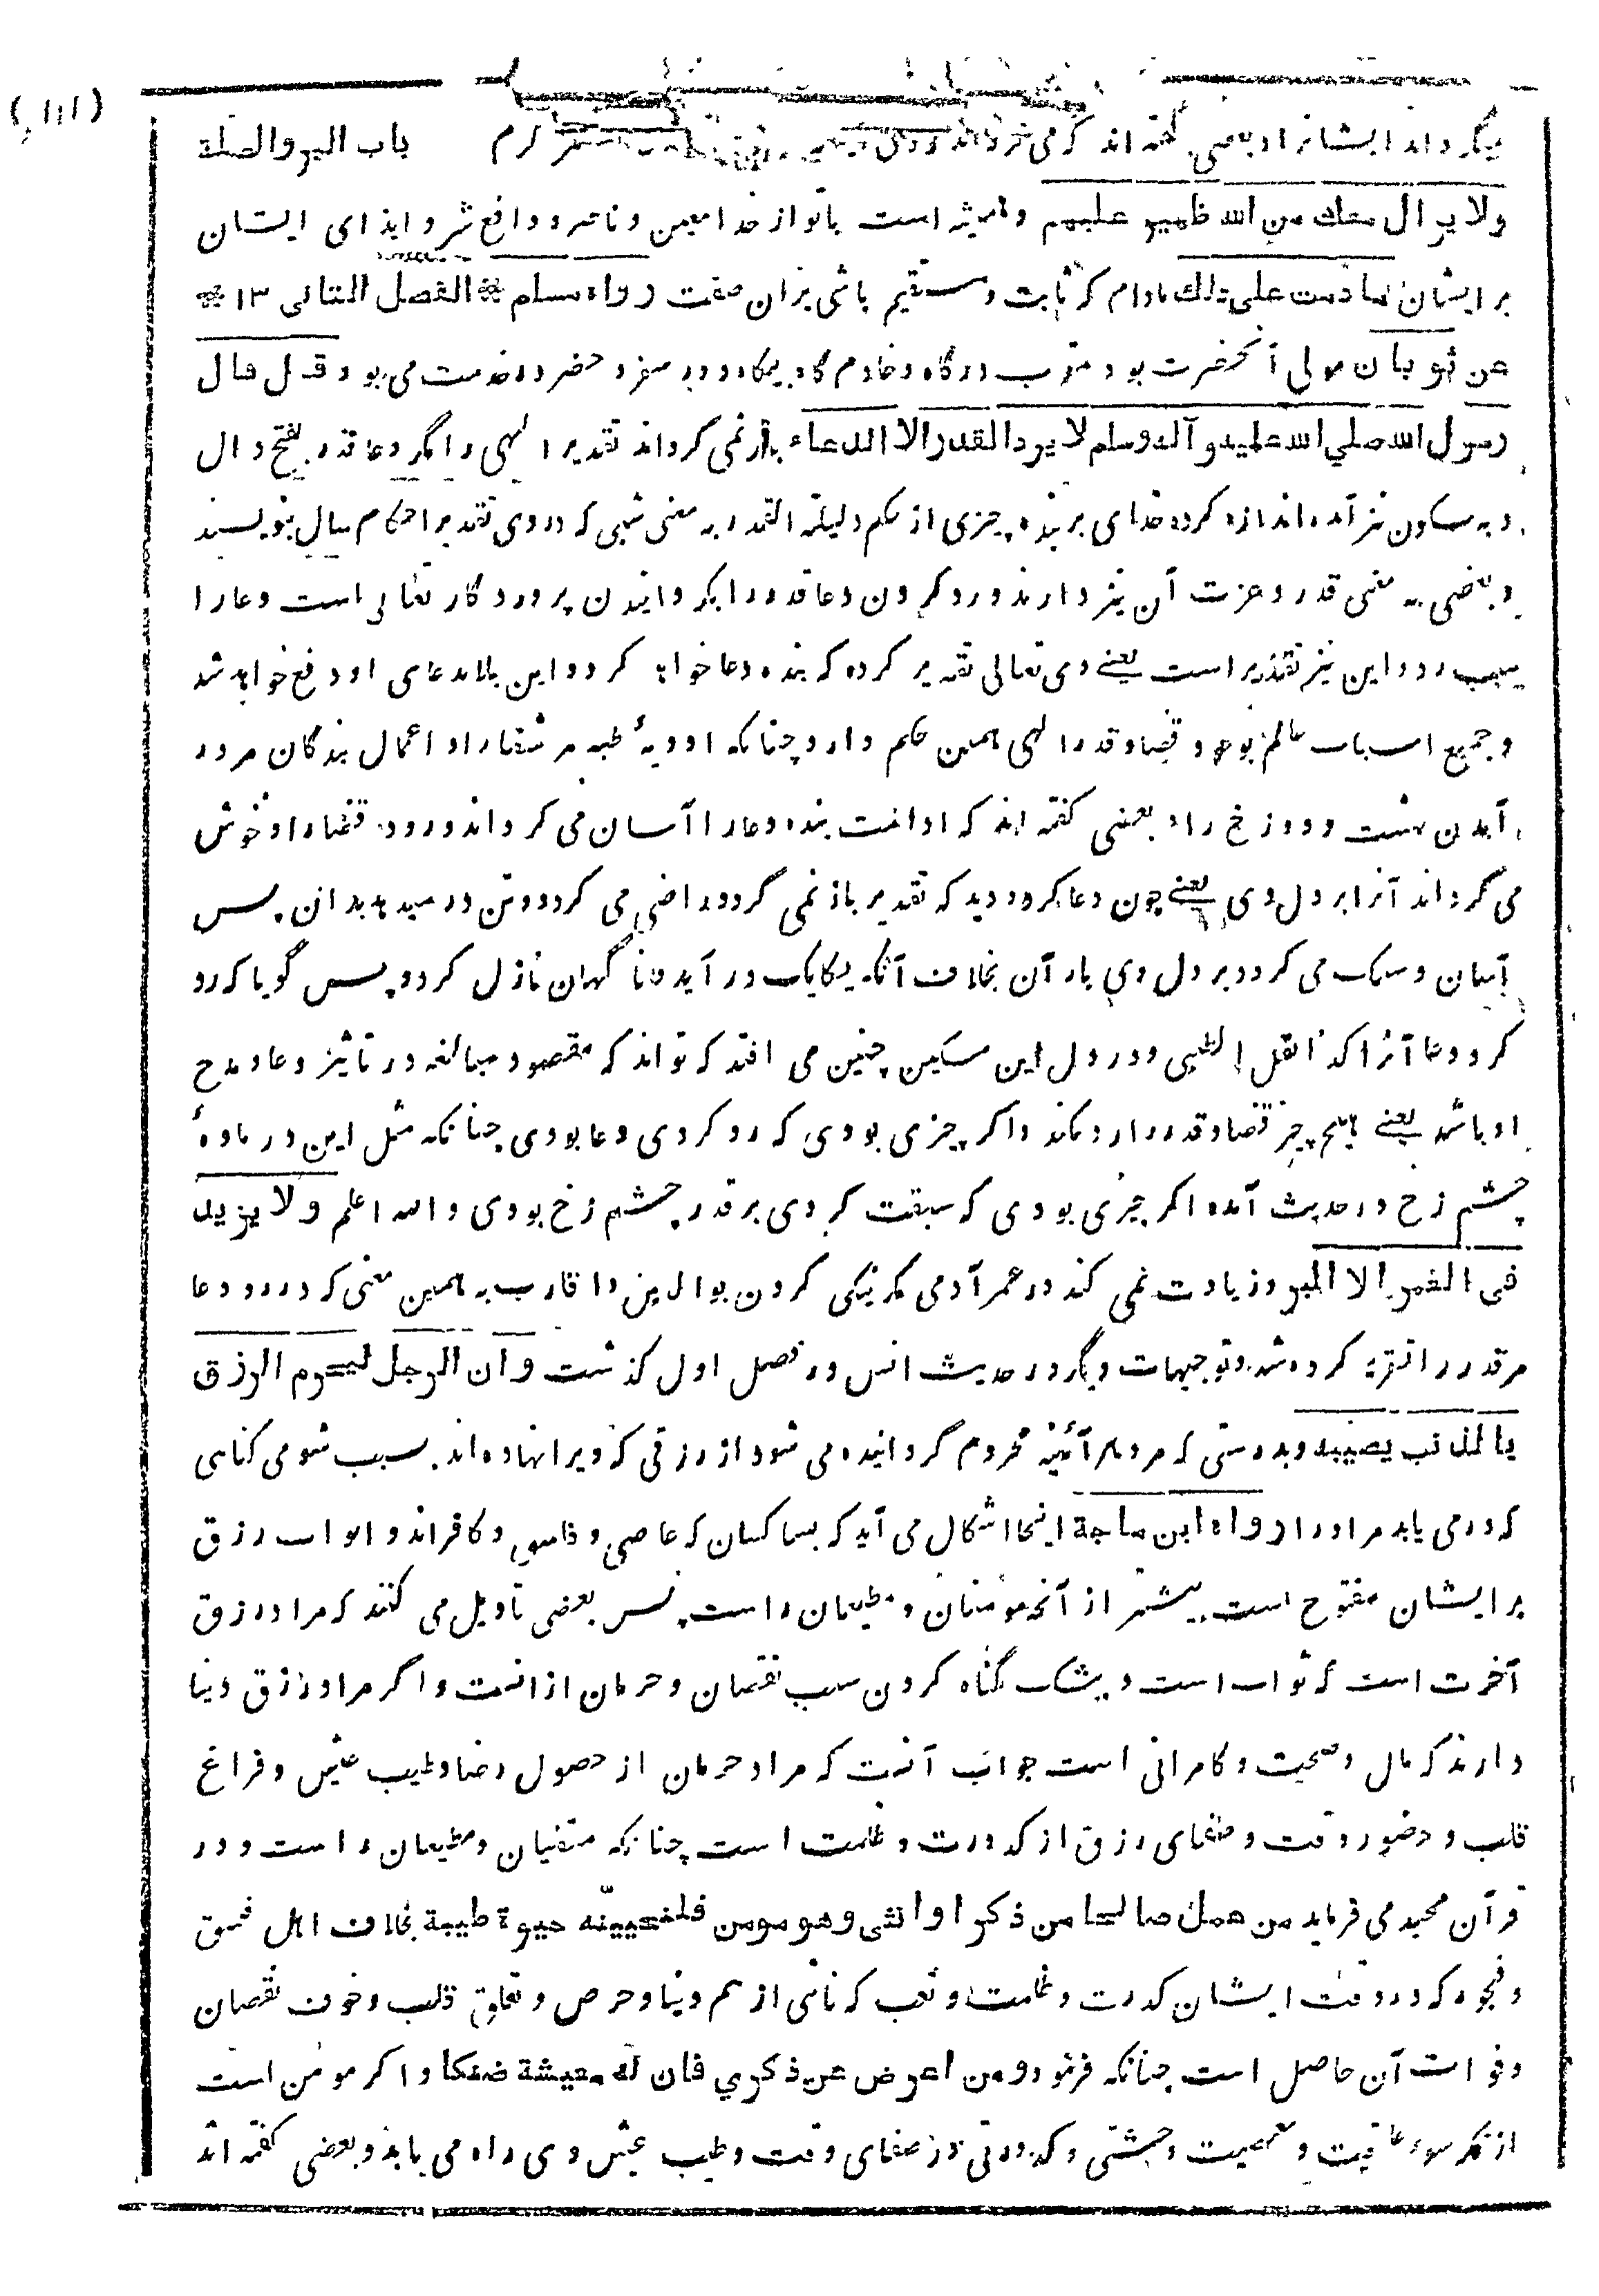 (١١١)
باب البر والصلة
میگرداند ایشانرا و بعضی گفته اند که می گرم
ولا یزال معك من الله ظهیر علیهم و همیشه است باتو از خدا معین و ناصر و دافع شر و ایذای ایشان
بر ایشان ما دمت علی ذلك مادام که ثابت و مستقیم باشی بران صفت رواه مسلم * الفصل الثانی ١٣ *
عن ثوبان مولی آنحضرت بود مقرب درگاه و خادم گاه بیگاه و در سفر و حضر در خدمت می بود قال قال
رسول الله صلي الله علیه و آله وسلم لا یرد القدر الا الدعاء باز نمی گرداند تقدیر الهی را مگر دعا قدر بفتح دال
و به سکون نیز آمده اندازه کرده خدای بر بنده چیزی از حکم و لیلة القدر به معنی شبی که دروی تقدیر احکام سال بنویسند
و بعضی به معنی قدر و عزت آن نیز دارند و رد کردن دعا قدر را بگردانیدن پروردگار تعالی است دعا را
سبب رد و این نیز تقدیر است یعنے وی تعالی تقدیر کرده که بنده دعا خواهد کرد و این بلا بدعای او دفع خواهد شد
و جمیع اسباب عالم بوجود قضا و قدر الهی همین حکم دارد چنانکه ادویهٔ طبیه مر شفا را و اعمال بندگان مر در
آمدن بهشت و دوزخ را و بعضی گفته اند که اذاقت بنده دعا را آسان می گرداند ورود قضا را و خوش
می گرداند آنرا بر دل وی یعنے چون دعا کرد و دید که تقدیر باز نمی گردد راضی می گردد و تن در میدهد بدان پس
آسان و سبک می گردد بر دل وی بار آن بخلاف آنکه یکایک در آید و ناگهان نازل گردد پس گویا که رد
کرد دعا آنرا کذا نقل الطیبی و در دل این مسکین چنین می افتد که تواند که مقصود مبالغه در تاثیر دعا و مدح
او باشد یعنے هیچ چیز قضا و قدر را رد نکند و اگر چیزی بودی که رد کردی دعا بودی چنانکه مثل این در مادهٔ
چشم زخ در حدیث آمده اگر چیزی بودی که سبقت کردی بر قدر چشم زخ بودی و الله اعلم ولا یزید
فی العمر الا البر و زیادت نمی کند در عمر آدمی مگر نیکی کردن بوالدین و اقارب به همین معنی که در رد دعا
مر قدر را تقریر کرده شد و توجیهات دیگر در حدیث انس در فصل اول گذشت وان الرجل لیحرم الرزق
بالذنب یصیبه و بدرستی که مرد هر آئینه محروم گردانیده می شود از رزقی که ویرا نهاده اند بسبب شومی گناهی
که در می یابد مر او را رواه ابن ماجة اینجا اشکال می آید که بسا کسان که عاصی و فاسق و کافر اند و ابواب رزق
بر ایشان مفتوح است بیشتر از آنچه مؤمنان و مطیعان راست پس بعضی تاویل می کنند که مراد رزق
آخرت است که ثواب است و بیشک گناه کردن سبب نقصان و حرمان ازانست و اگر مراد رزق دنیا
دارند که مال و صحبت و کامرانی است جواب آنست که مراد حرمان از حصول رضا و طیب عیش و فراغ
قلب و حضور وقت و صفای رزق از کدورت و ظلمت است چنانکه متقیان و مطیعان راست و در
قرآن مجید می فرماید من عمل صالحا من ذکر او انثی و هو مومن فلنحیینه حیوة طیبة بخلاف اهل فسق
و فجور که در وقت ایشان کدرت و ظلمت و تعب که ناشی از هم دنیا و حرص و تعلق قلب و خوف نقصان
و فوات آن حاصل است چنانکه فرمود و من اعرض عن ذکري فان له معیشة ضنکا و اگر مومن است
از فکر سوء عاقبت و معصیت وحشتی و کدورتی در صفای وقت و طیب عیش وی راه می یابد و بعضی گفته اند